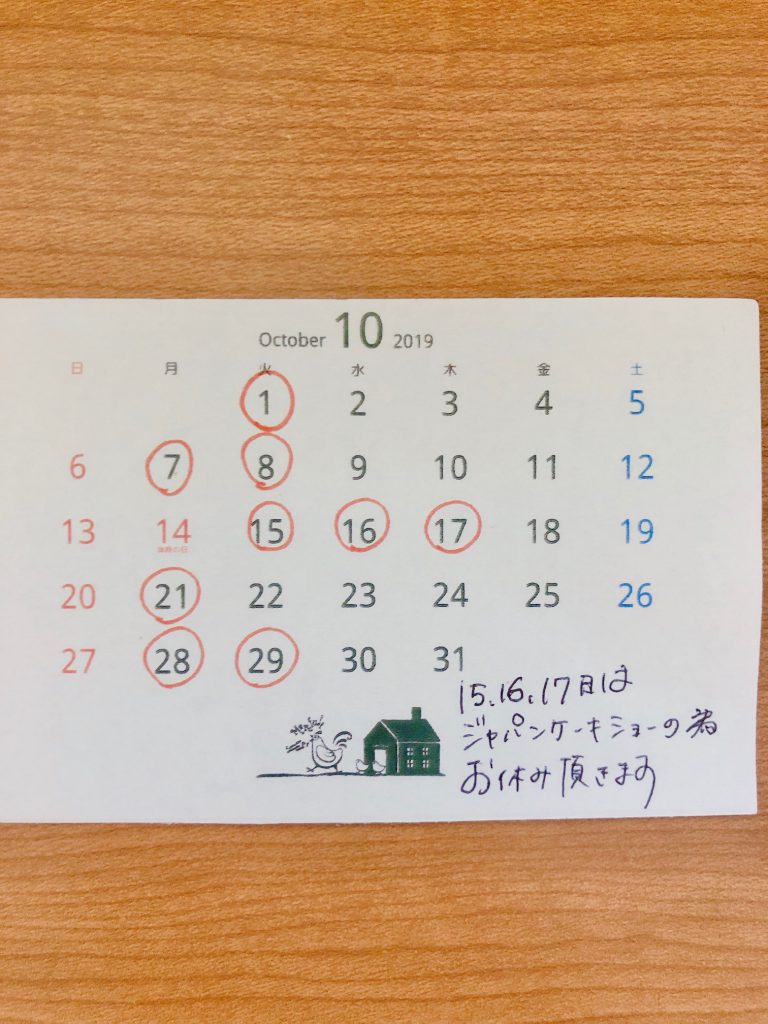 October 10 2019
日 月 火 水 木 金 土
1 2 3 4 5
6 7 8 9 10 11 12
13 14 15 16 17 18 19
体育の日
20 21 22 23 24 25 26
27 28 29 30 31
15、16、17日は
ジャパンケーキショーの為
お休み頂きます